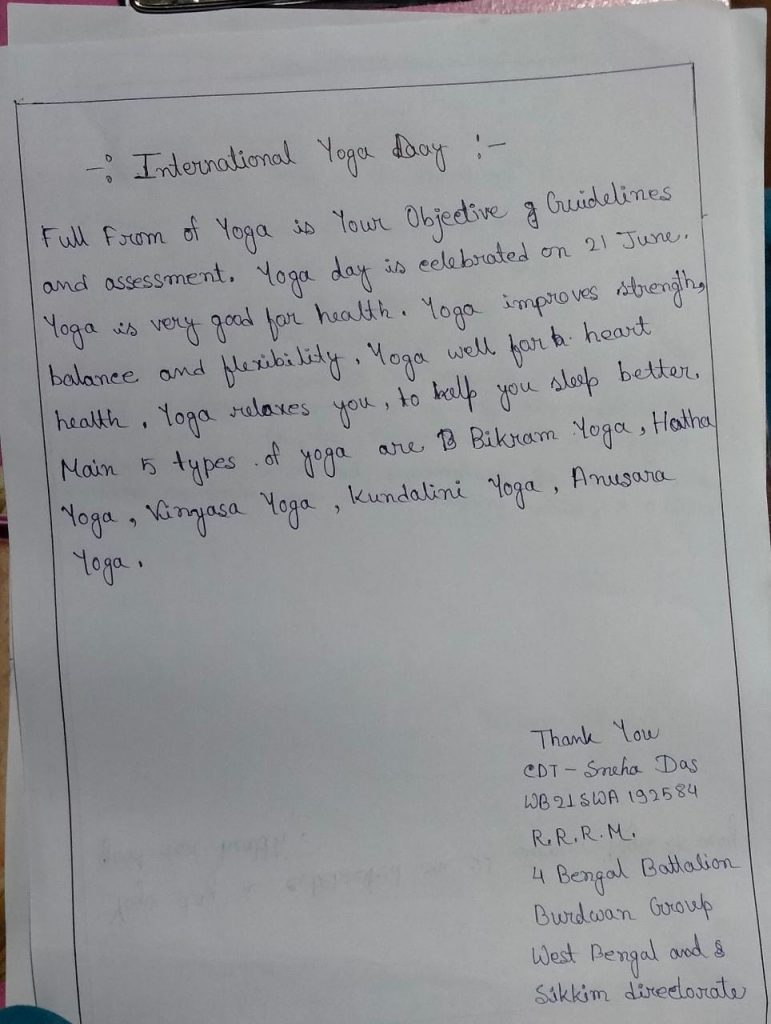 -: International Yoga Daay :-
Full From of Yoga is Your Objective g Guidelines
and assessment. Yoga day is celebrated on 21 June.
Yoga is very good for health. Yoga improves strength,
balance and flexibility. Yoga well for heart
health. Yoga relaxes you, to help you sleep better.
Main 5 types of yoga are B Bikram Yoga, Hatha
Yoga, Vinyasa Yoga, Kundalini Yoga, Anusara
Yoga.
Thank You
CDT - Sneha Das
WB21SWA 192584
R.R.R.M.
4 Bengal Battalion
Burdwan Group
West Bengal and s
Sikkim directorate